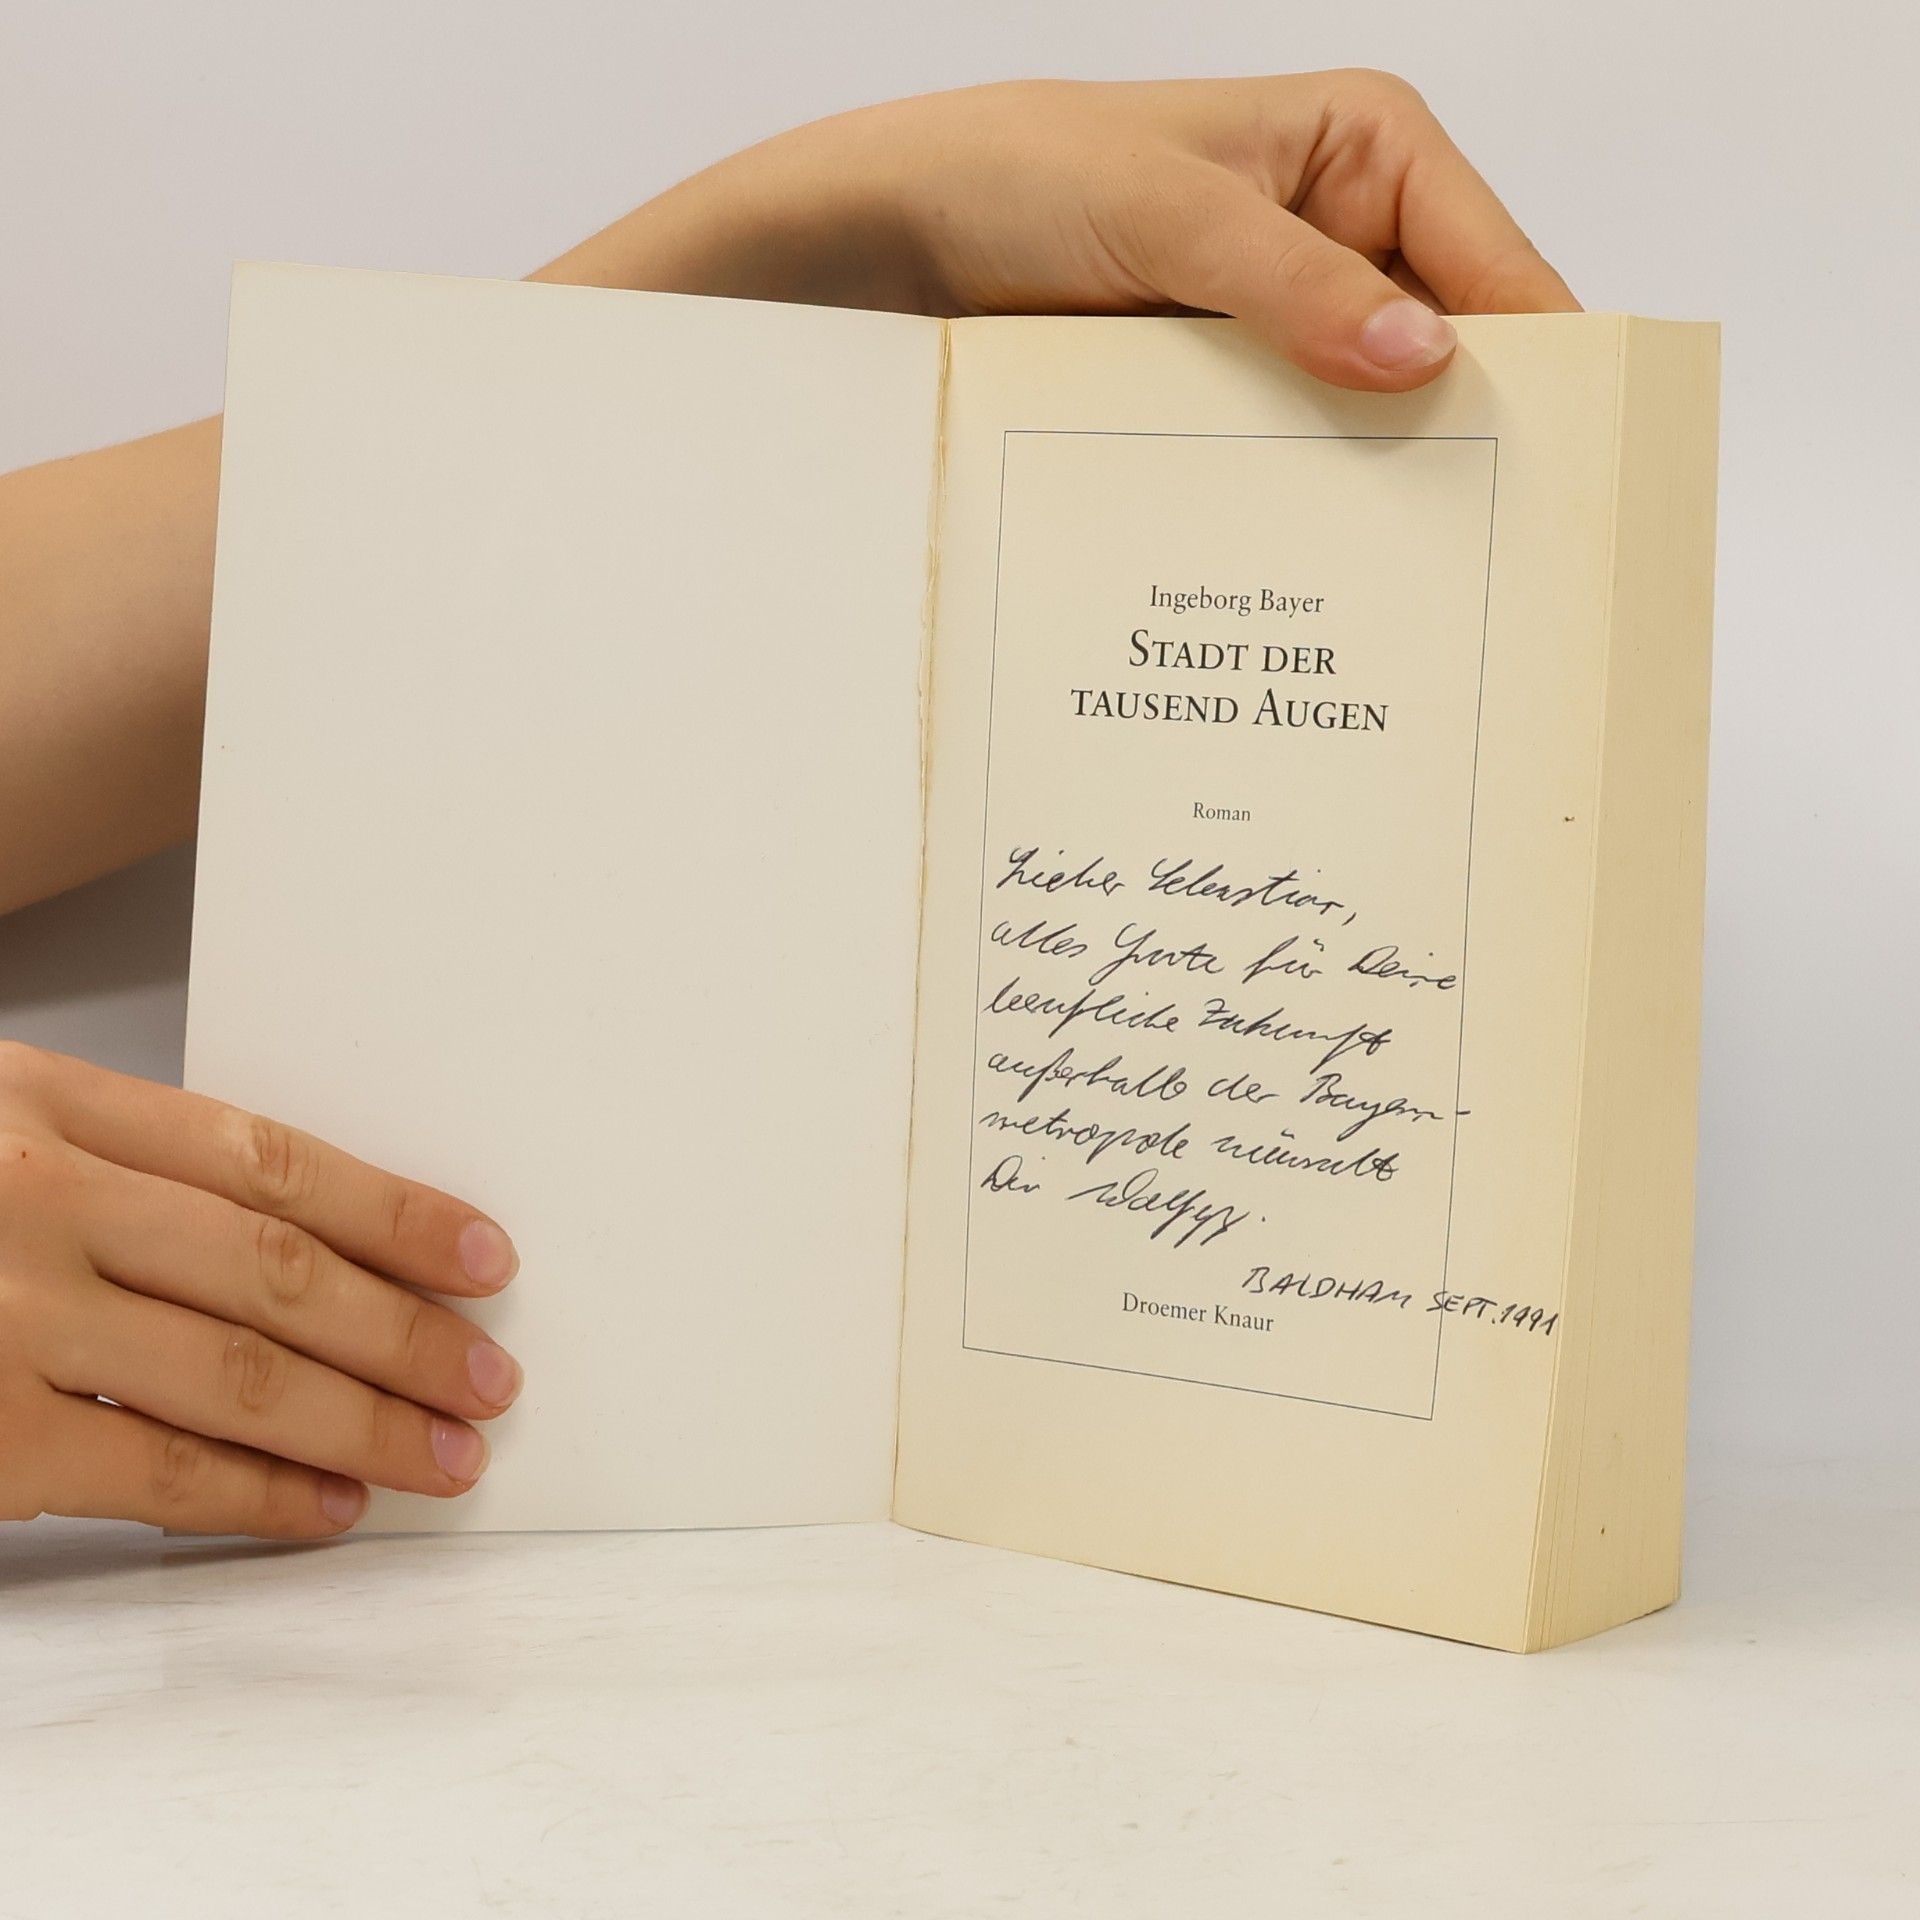 Ingeborg Bayer
STADT DER
TAUSEND AUGEN
Roman
Lieber Sebastian,
alles Gute für Deine
berufliche Zukunft
außerhalb der Bayern-
metropole wünscht
Dir
BALDHAM SEPT. 1991
Droemer Knaur